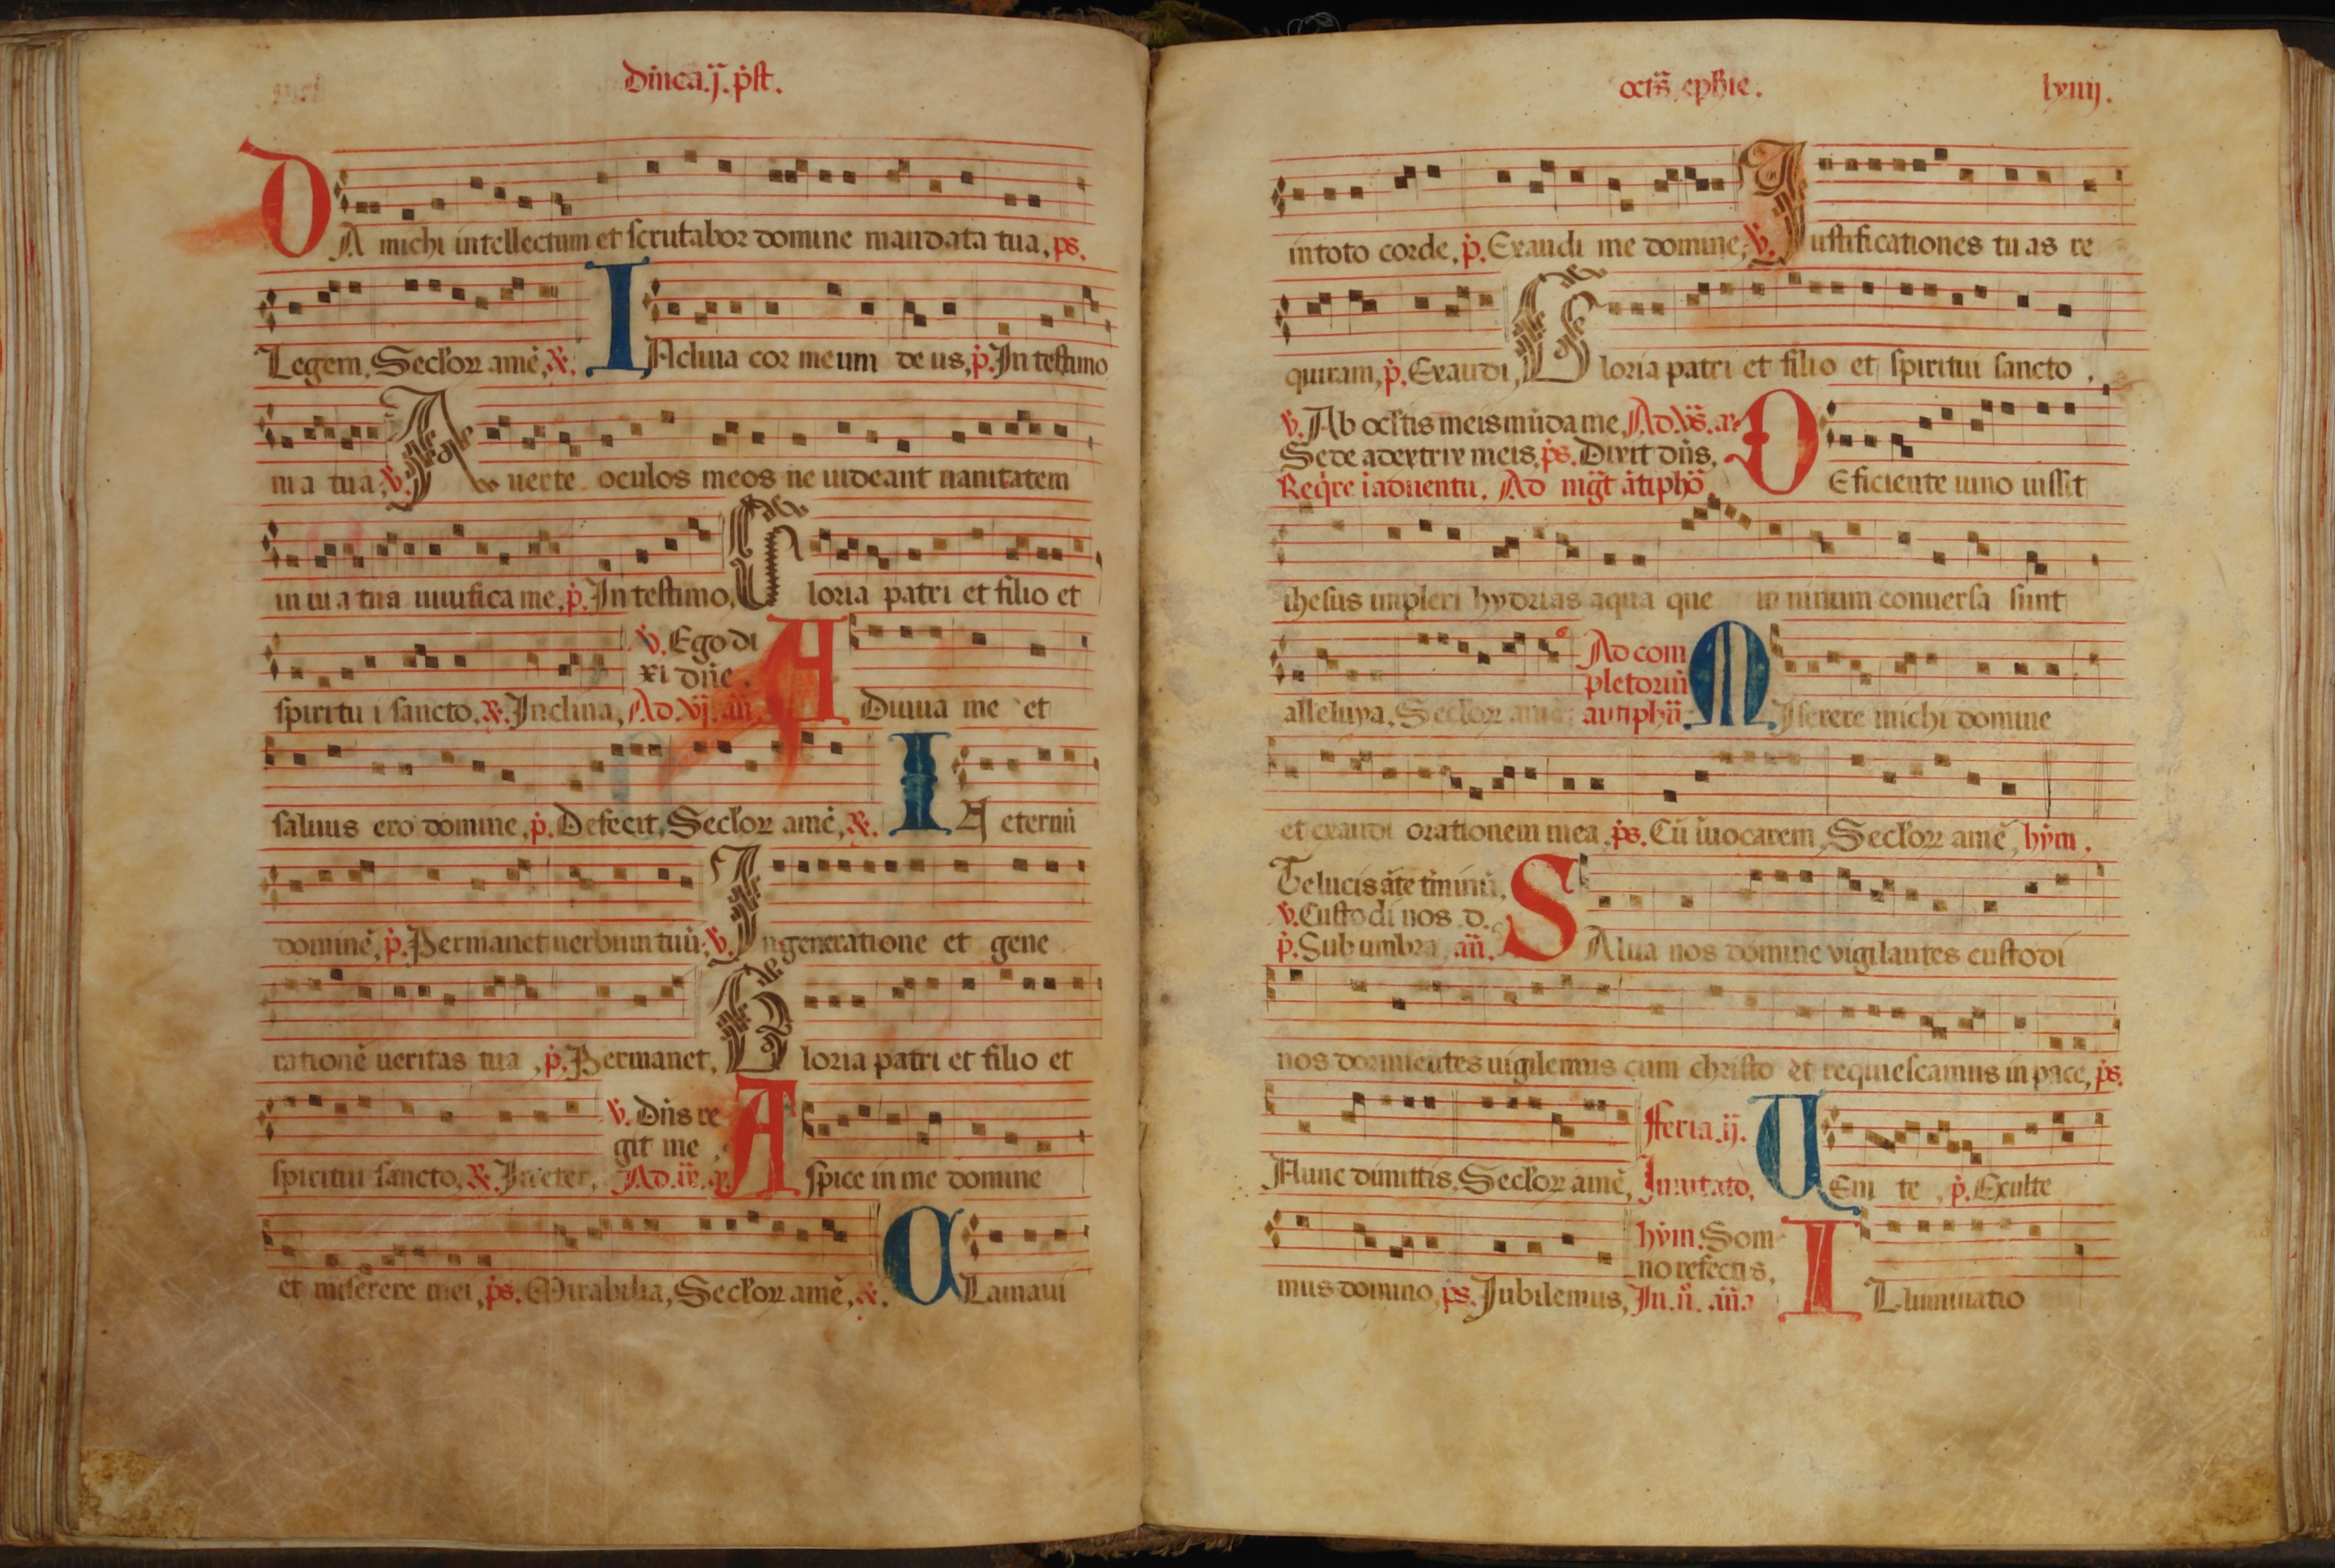 Dñica.ȷ̈. pꝰt.
DA michi intellectum et scrutabor domine mandata tua, ps.
Legem, Sećlorꝝ amē, ℟. INclina cor meum de us, p̄. In testimo
nia tua, ℣. Auerte oculos meos ne uideant uanitatem
in uia tua uiuifica me, p̄. In testimo, Gloria patri et filio et
spiritu i sancto, ℟. Inclina, ℣. Ego di
xi dñe. Ad. vj. añ ADiuua me et
saluus ero domine, p̄. Defecit, Sećlorꝝ amē, ℟. IN eternū
dominē, p̄. Permanet uerbum tuū, ℣. In generatione et gene
rationē ueritas tua, p̄. Permanet, Gloria patri et filio et
spiritui sancto, ℟. In eter, ℣. Dñs re
git me, Ad. ix. añ Aspice in me domine
et miserere mei, ps. Mirabilia, Sećlorꝝ amē, ℟. CLamaui
octā ephie. lxiiij.
in toto corde, p̄. Exaudi me domine, ℣. Iustificationes tu as re
quiram, p̄. Exaudi, Gloria patri et filio et spiritui sancto,
℣. Ab ocĺtis meis mūda me, Ad. vs̄. añ
Sede a dextrix meis, ps. Dixit dñs,
Reqͥre ī aduentu. Ad mg̃t ātiphō DEficiente uino iussit
ihesus impleri hydrias aqua que in uinum conuersa sunt
alleluya, Sećlorꝝ amē, Ad com
pletoriū
antiphā MIserere michi domine
et exaudi orationem mea, ps. Cū īuocarem, Sećlorꝝ amē, hȳm.
Te lucis āte t̄minū,
℣. Custodi nos d.
p̄. Sub umbra, añ. SAlua nos domine vigilantes custodi
nos dormientes uigilemus cum christo et requiescamus in pace, ps.
Nunc dimittis, Sećlorꝝ amē, fferia. ij. Inuitato, VEni te, p̄. Exulte
mus domino, ps. Jubilemus, hȳm. Som
no refectis,
In. ı̊. añа ILluminatio